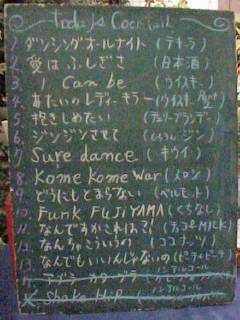 Today's Cocktail
1. ダンシングオールナイト (テキーラ)
2. 愛はふしぎさ (日本酒)
3. I Can be (ウイスキー)
4. あたいのレディーキラー (ウイスキー
5. 抱きしめたい
6. ジンジンさせて
7. Sure dance (キウイ)
8. Kome Kome War (メロン)
9. どうにもとまらない (ベルモット)
10. Funk FUJIYAMA (くちなし)
11. なんですかこれは?! (チョコ&MILK)
12. なんちゃこういうの (ココナッツ)
13. なんでもいいんじゃないの
ノンアルコール
ノンアルコール